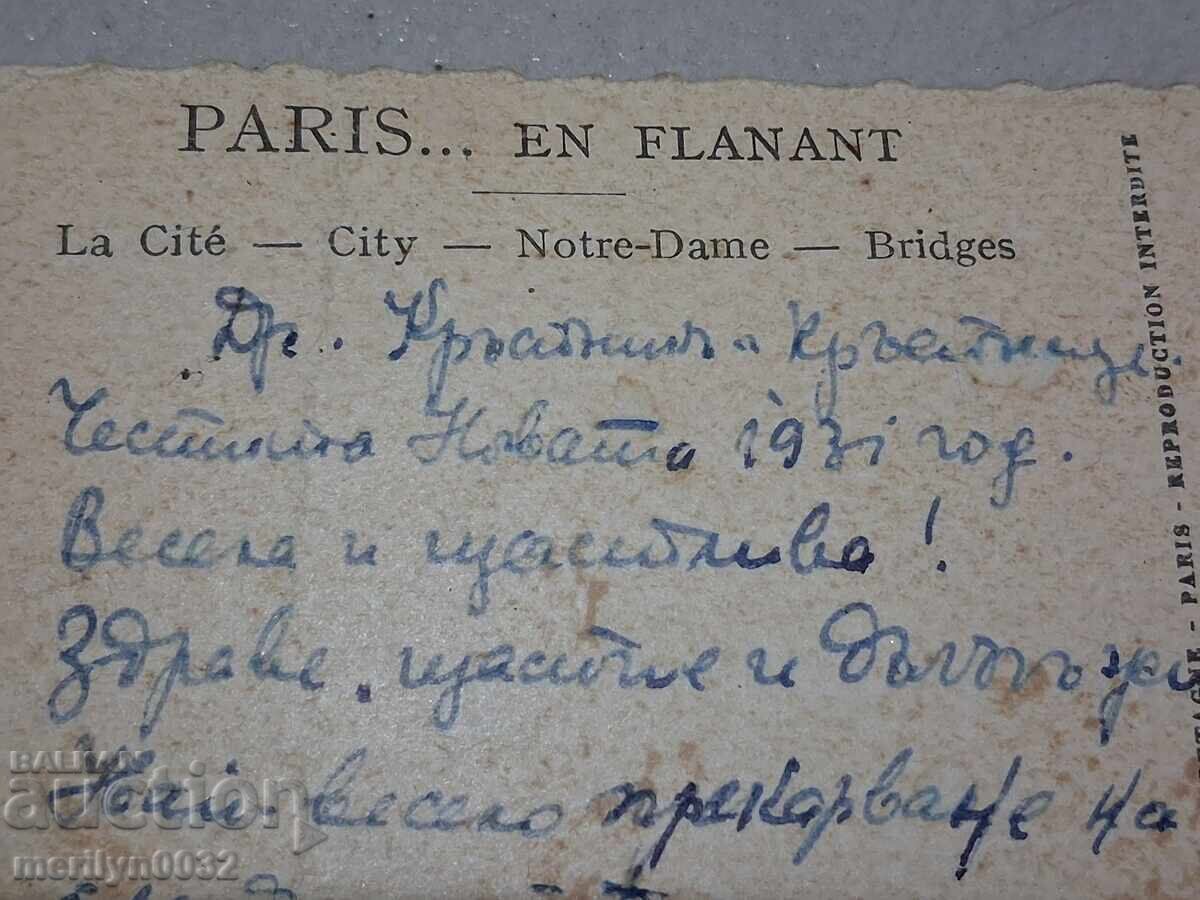 PARIS... EN FLANANT
La Cité — City — Notre-Dame — Bridges
Др. Кръстникъ и Кръстнице.
Честита Новата 1931 год.
Весела и щастлива!
Здраве, щастие и дългъ жи
Най-весело прекарване на
PARIS - REPRODUCTION INTERDITE
BALKAN
auction
merilyn0032